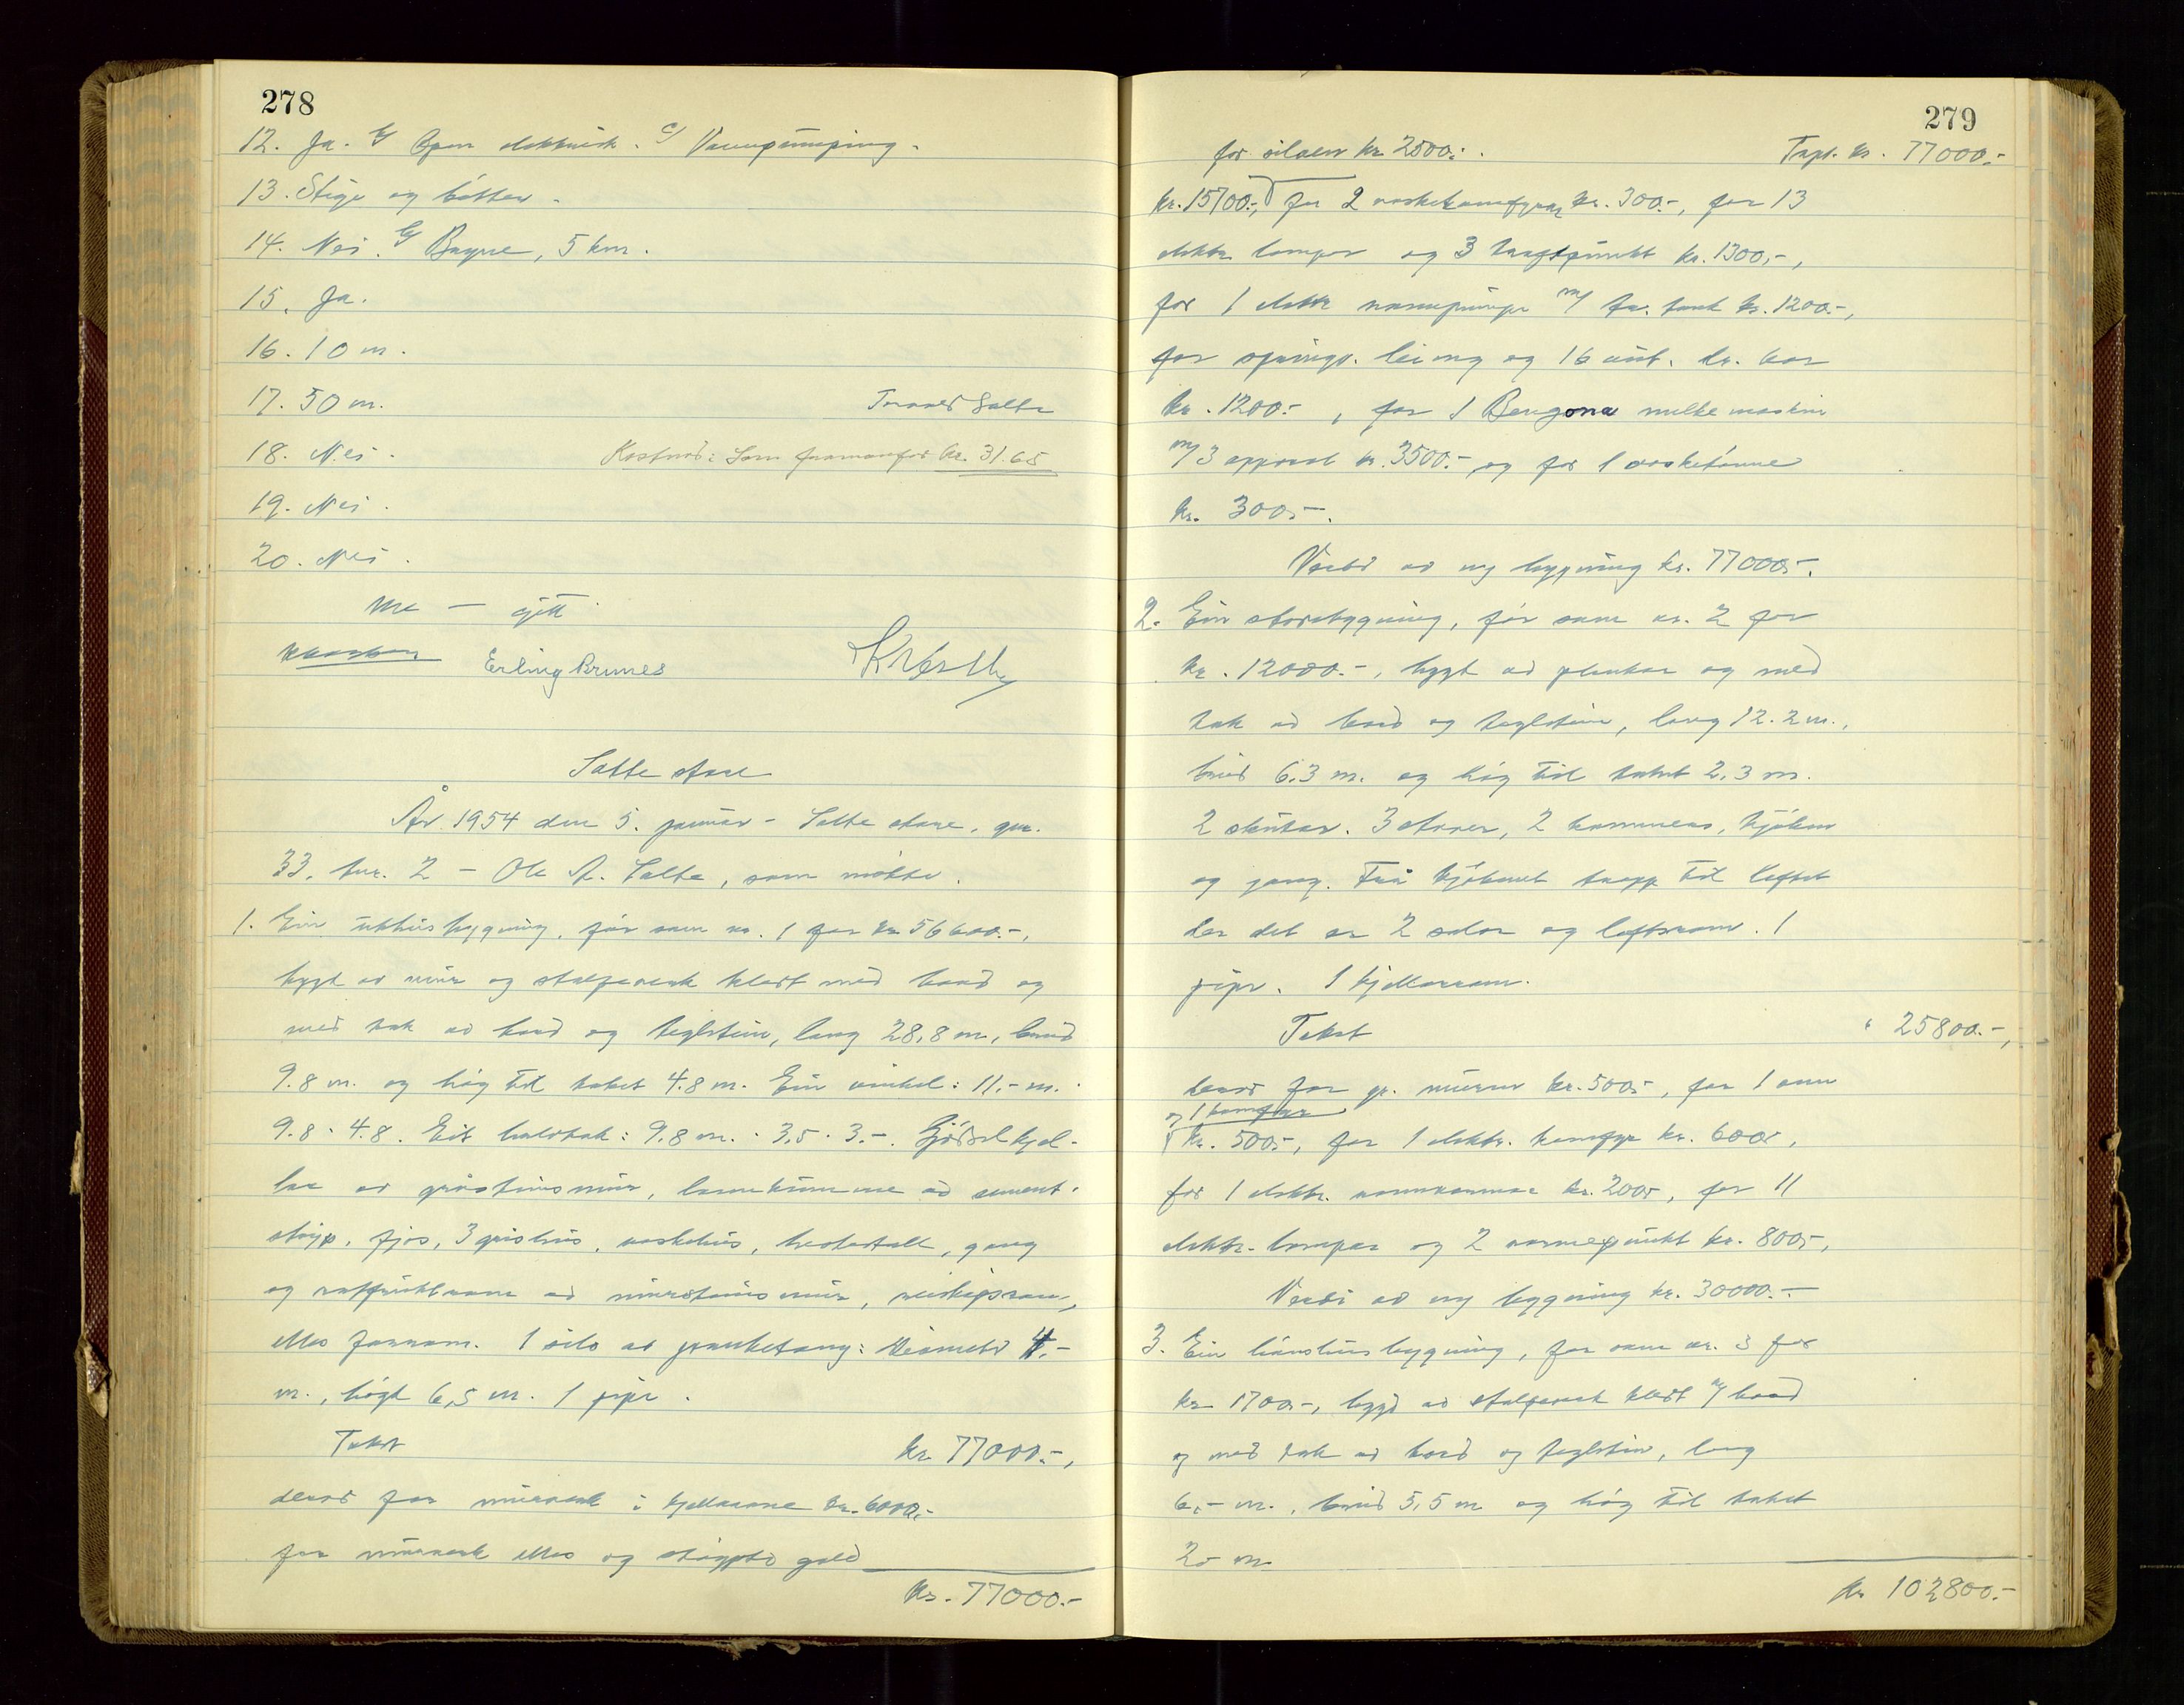 278
12. Ja. b/ Open elektrisk. c/ Vasspumping.
13. Stige og bøtter.
14. Nei. b/ Bryne, 5 km.
15. Ja.
16. 10 m.
17. 50 m. Salte
18. Nei. Kostnad: Som framanfor kr. 31.65
19. Nei.
20. Nei.
Erling Brunes
Salte store
År 1954 den 5. januar - Salte store, gnr.
33, bnr. 2 - Ole A. Salte, som møtte.
1. Ein uthusbygning, før som nr. 1 for kr. 56600.-,
bygt av mur og stolpeverk kledt med bord og
med tak av bord og teglstein, lang 28,8 m, breid
9.8 m. og høg til taket 4.8 m. Ein vinkel: 11.- m.
9.8 · 4.8. Eit halvtak: 9.8 m. · 3,5 · 3.-. Gjødselkjel-
lar av gråsteinsmur, landkumme av sement-
støyp, fjos, 3 grishus, vaskehus, hestestall, gang
og rotfruktrom av mursteinsmur, reiskapsrom,
elles forrom. 1 silo av plankelang: diameter 4.-
m., høgd 6,5 m. 1 pipe.
Takst kr. 77000.-,
derav for murverk i kjellarane kr. 6000.-
for murverk elles og støypte golv
kr. 77000.-
279
for siloen kr. 2500.-. Trpt. kr. 77000.-
kr. 15700.-, for 2 vaskekomfyrar kr. 300.-, for 13
elektr. lamper og 3 kraftpunkt kr. 1300,-,
for 1 elektr. vasspumpe m/ tr. tank kr. 1200.-,
for springv. leiing og 16 aut. dr. kar
kr. 1200.-, for 1 Bergona melkemaskin
m/ 3 apparat kr. 3500.- og for 1 vasketrommel
kr. 300.-.
Verdi av ny bygning kr. 77000.-.
2. Ein storebygning, før som nr. 2 for
kr. 12000.-, bygt av plankar og med
tak av bord og teglstein, lang 12.2 m.,
breid 6.3 m. og høg til taket 2,3 m.
2 skutar. 3 stover, 2 kammers, kjøken
og gang. Frå kjøkenet trapp til loftet
der det er 2 salar og loftsrom. 1
pipe. 1 kjellarrom.
Takst " 25800.-,
derav for gr. muren kr. 500.-, for 1 omn
og 1 komfyr
kr. 500.-, for 1 elektr. komfyr kr. 600.-,
for 1 elektr. vannvarmar kr. 200.-, for 11
elektr. lamper og 2 varmepunkt kr. 800.-,
Verdi av ny bygning kr. 30000.-
3. Ein hønshusbygning, før som nr. 3 for
kr. 1700.-, bygd av stolpeverk kledt m/ bord
og med tak av bord og teglstein, lang
6,- m., breid 5,5 m og høg til taket
2,- m.
kr. 102800.-